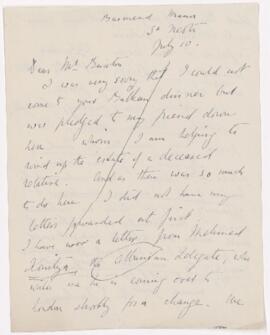 St Neots
July 10.
Dear Mr Buxton
I was very sorry that I could not
come to your Balkan dinner but
was pledged to my friend down
here whom I am helping to
wind up the estate of a deceased
relative. And as there was so much
to do here I did not have my
letters forwarded at first.
I have now a letter from Mehmed
Konitza, the Albanian delegate, who
writes me he is coming over to
London shortly for a change. We